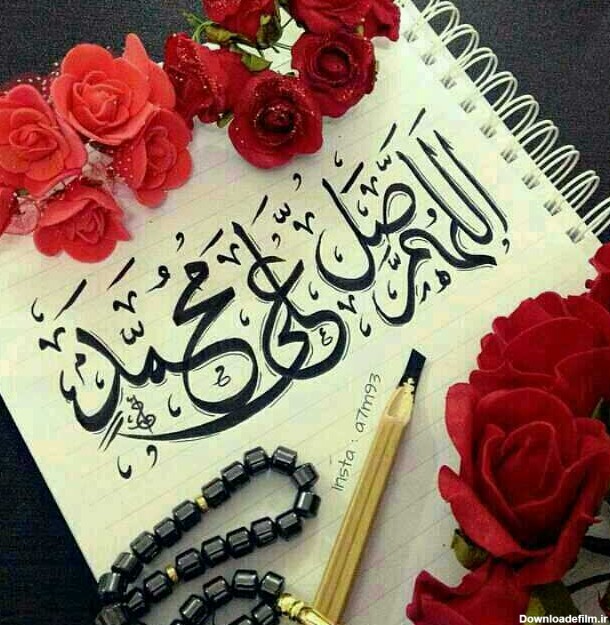 اللهم صَلِّ عَلَى مُحَمَّد
Insta : a7m93
Downloadefilm.ir